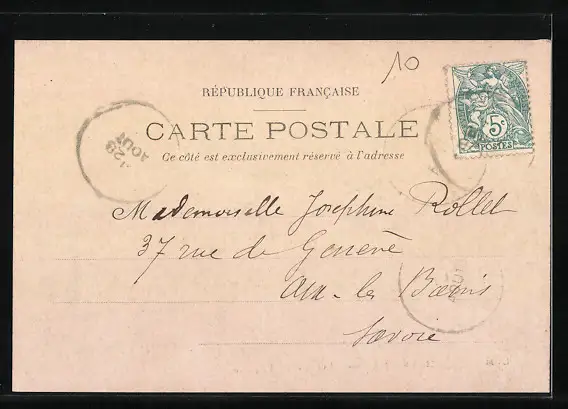 10
RÉPUBLIQUE FRANÇAISE
CARTE POSTALE
Ce côté est exclusivement réservé à l'adresse
5c
POSTES
28
AOUT
Mademoiselle Josephine Rollet
37 rue de Genève
Aix-les Bains
Savoie